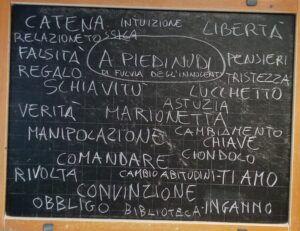 CATENA INTUIZIONE LIBERTÀ
RELAZIONE TOSSICA
FALSITÀ A PIEDI NUDI PENSIERI
REGALO DI FULVIA DEGL'INNOCENTI TRISTEZZA
SCHIAVITÙ LUCCHETTO
ASTUZIA
VERITÀ MARIONETTA
MANIPOLAZIONE CAMBIAMENTO
CHIAVE
COMANDARE CIONDOLO
RIVOLTA CAMBIO ABITUDINI-TI AMO
CONVINZIONE
OBBLIGO BIBLIOTECA-INGANNO